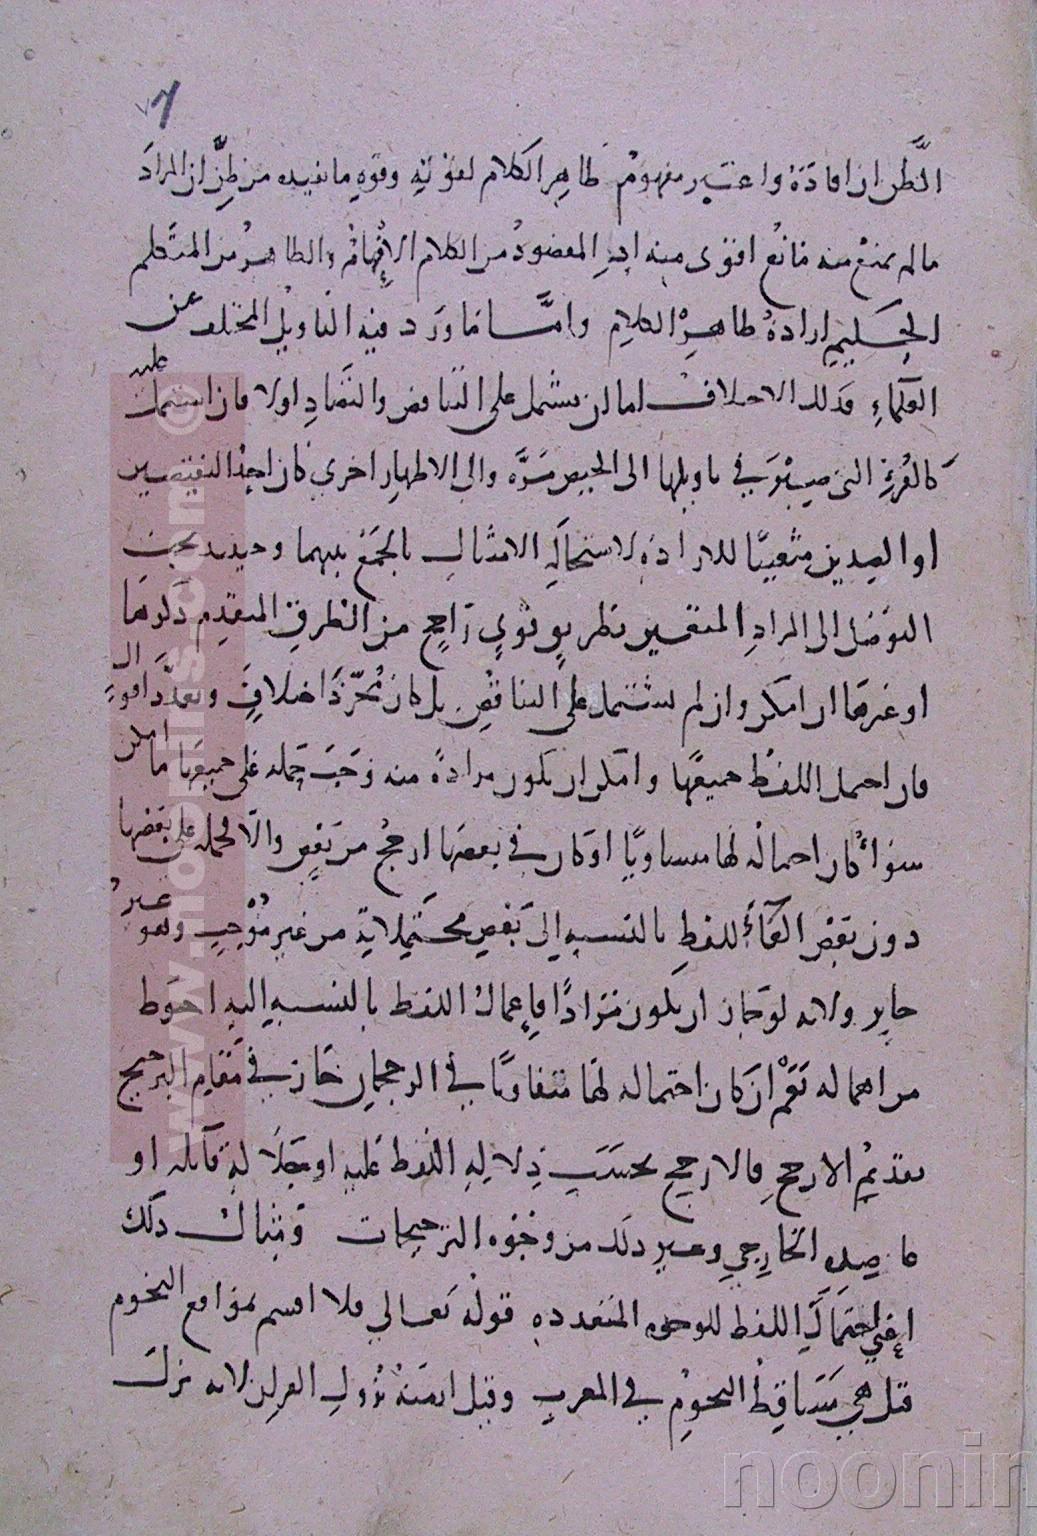 ٧
الظن ان افادة واعتبر مفهوم ظاهر الكلام لقوته وقوة ما يفيده من ظن ان المراد
ما لم يمنع منه مانع اقوى منه اذ المقصود من الكلام الافهام والظاهر من المتكلم
الحكيم ارادة ظاهر الكلام واما ما ورد فيه التأويل المختلف عن
العلماء فذلك الاختلاف اما ان يشتمل على التناقض والتضاد اولا فان اشتمل عليه
كالقرء التي صير في تأويلها الى الحيض مرة والى الاطهار اخرى كان احد النقيضين
او الضدين متعينا للارادة لاستحالة الامتثال بالجمع بينهما وحينئذ يجب
التوصل الى المراد المتعين بطريق قوي راجح من الطرق المتقدم ذكرها
او غيرها ان امكن وان لم يشتمل على التناقض بل كان مجرد اختلاف وتعدد اقوال
فان احتمل اللفظ جميعها وامكن ان يكون مرادة منه وجب حمله على جميعها ما امكن
سواء كان احتماله لها مساويا او كان في بعضها ارجح من بعض والا فحمله على بعضها
دون بعض الغاء للفظ بالنسبة الى بعض محتملاته من غير موجب وهو غير
جايز ولانه لو جاز ان يكون مرادا فاعمال اللفظ بالنسبة اليه احوط
من اهماله نعم ان كان احتماله لها متفاوتا في الرجحان جاز في مقام الترجيح
تقديم الارجح فالارجح بحسب دلالة اللفظ عليه او بجلالة قائله او
الخارجي وغير ذلك من وجوه الترجيحات ومثال ذلك
اعني احتمال اللفظ للوجوه المتعددة قوله تعالي فلا اقسم بمواقع النجوم
قيل هي مساقط النجوم في المغرب وقيل ازمنة نزول القران لانه نزل
www.noorlis.com ©
noonin